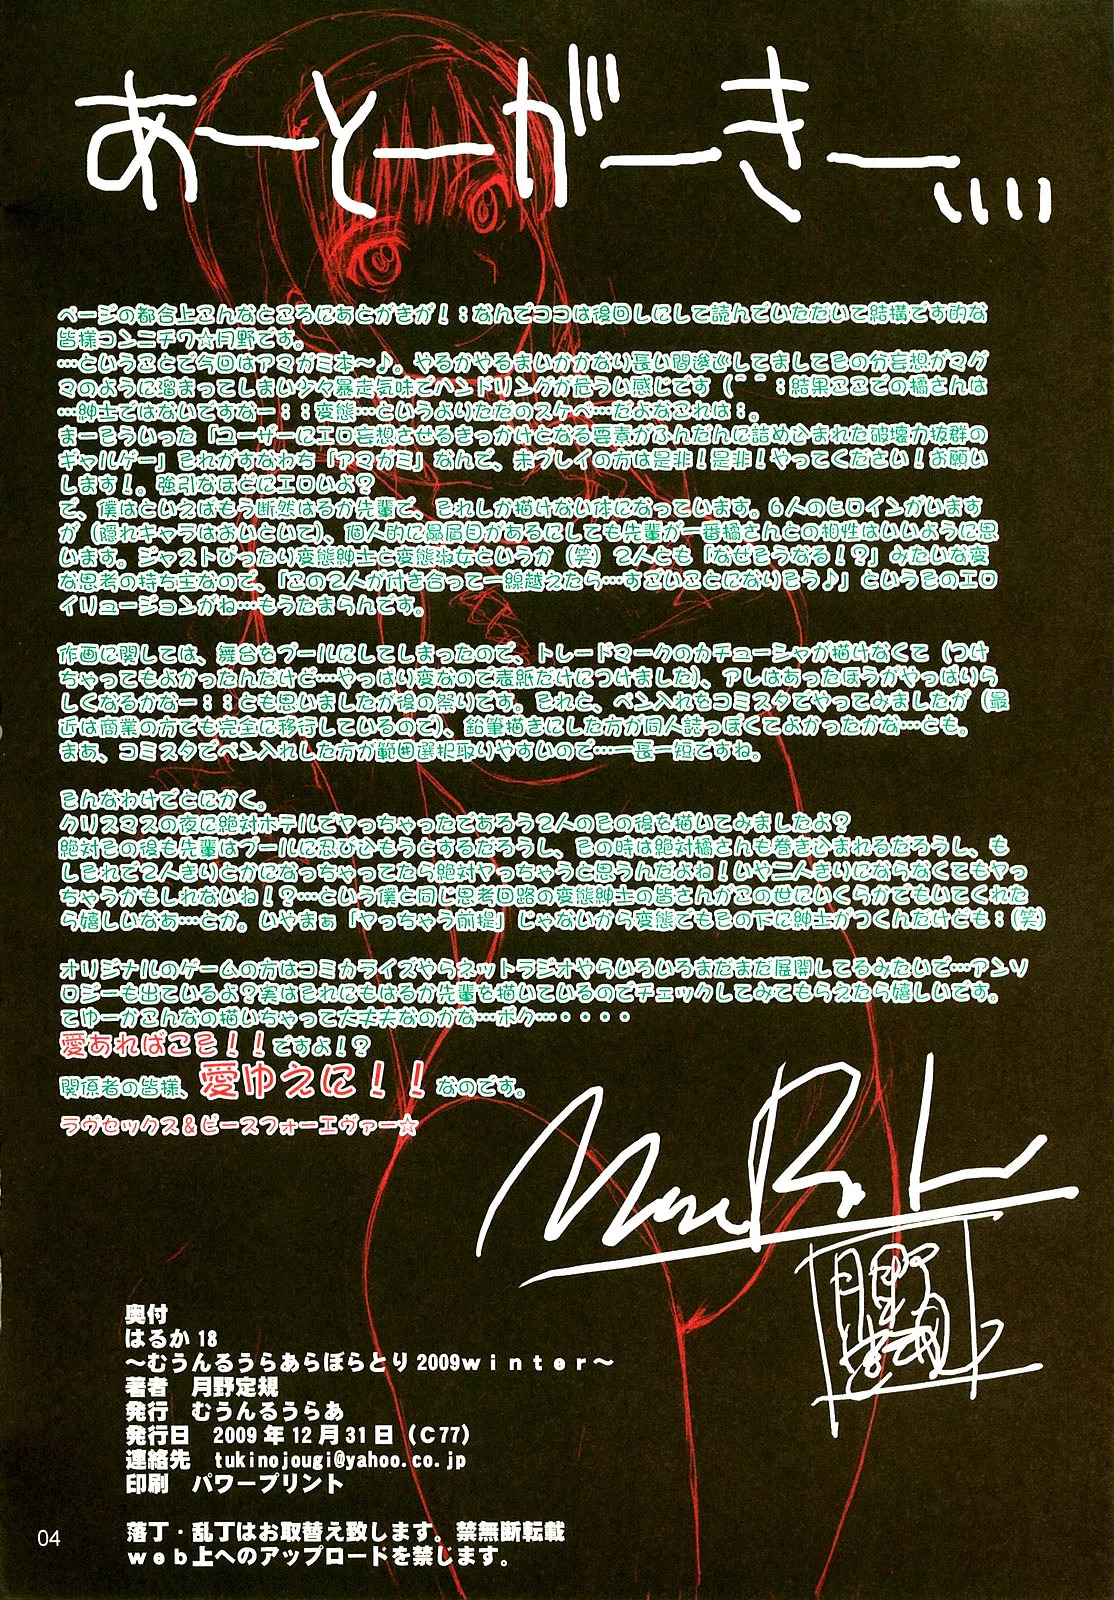 あーとーがーきー、、、、
ページの都合上こんなところにあとがきが！；なんでココは後回しにして読んでいただいて結構です的な
皆様コンニチワ☆月野です。
…ということで今回はアマガミ本～♪。やるかやるまいかかなり長い間逡巡してましてその分妄想がマグ
マのように溜まってしまい少々暴走気味でハンドリングが危うい感じです（＾＾；結果ここでの橘さんは
…紳士ではないですなー；；変態…というよりただのスケベ…だよなこれは；。
まーそういった「ユーザーにエロ妄想させるきっかけとなる要素がふんだんに詰め込まれた破壊力抜群の
ギャルゲー」それがすなわち「アマガミ」なんで、未プレイの方は是非！是非！やってください！お願い
します！。強引なほどにエロいよ？
で、僕はといえばもう断然はるか先輩で、それしか描けない体になっています。６人のヒロインがいます
が（隠れキャラはおいといて）、個人的に贔屓目があるにしても先輩が一番橘さんとの相性はいいように思
います。ジャストぴったり変態紳士と変態淑女というか（笑）２人とも「なぜそうなる！？」みたいな変
な思考の持ち主なので、「この２人が付き合って一線越えたら…すごいことになりそう♪」というそのエロ
イリュージョンがね…もうたまらんです。
作画に関しては、舞台をプールにしてしまったので、トレードマークのカチューシャが描けなくて（つけ
ちゃってもよかったんだけど…やっぱり変なので表紙だけにつけました）、アレはあったほうがやっぱりら
しくなるかなー；；とも思いましたが後の祭りです。それと、ペン入れをコミスタでやってみましたが（最
近は商業の方でも完全に移行しているので）、鉛筆描きにした方が同人誌っぽくてよかったかな…とも。
まあ、コミスタでペン入れした方が範囲選択取りやすいので…一長一短ですね。
そんなわけでとにかく。
クリスマスの夜に絶対ホテルでヤっちゃったであろう２人のその後を描いてみましたよ？
絶対その後も先輩はプールに忍びこもうとするだろうし、その時は絶対橘さんも巻きこまれるだろうし、も
しそれで２人きりとかになっちゃってたら絶対ヤっちゃうと思うんだよね！いや二人きりにならなくてもヤっ
ちゃうかもしれないね！？…という僕と同じ思考回路の変態紳士の皆さんがこの世にいくらかでもいてくれた
ら嬉しいなあ…とか。いやまぁ「ヤっちゃう前提」じゃないから変態でもその下に紳士がつくんだけども；（笑）
オリジナルのゲームの方はコミカライズやらネットラジオやらいろいろまだまだ展開してるみたいで…アンソ
ロジーも出ているよ？実はそれにもはるか先輩を描いているのでチェックしてみてもらえたら嬉しいです。
てゆーかこんなの描いちゃって大丈夫なのかな…ボク…・・・・
愛あればこそ！！ですよ！？
関係者の皆様、愛ゆえに！！なのです。
ラヴセックス＆ピースフォーエヴァー☆
月野定規
奥付
はるか18
～むうんるうらあらぼらとり2009ｗｉｎｔｅｒ～
著者　月野定規
発行　むうんるうらあ
発行日　2009年12月31日（Ｃ77）
連絡先　tukinojougi@yahoo.co.jp
印刷　パワープリント
落丁・乱丁はお取替え致します。禁無断転載
ｗｅｂ上へのアップロードを禁じます。
04